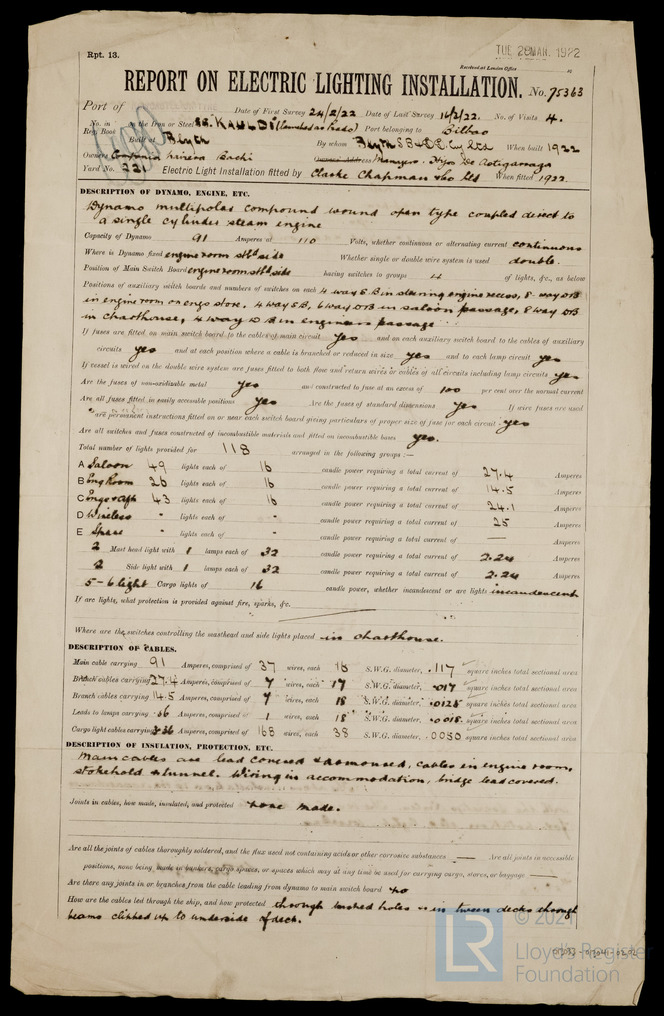 Rpt. 13.
TUE 28 MAR. 1922
Received at London Office
REPORT ON ELECTRIC LIGHTING INSTALLATION. No. 75363
Port of Date of First Survey 24/2/22 Date of Last Survey 16/3/22. No. of Visits 4.
No. in Reg. Book on the Iron or Steel S.S. Port belonging to Bilbao
Built at Blyth By whom Blyth S B & D D Coy Ltd When built 1922
Owners Owners' Address
Yard No. 221 Electric Light Installation fitted by Clarke Chapman & Co Ltd When fitted 1922.
DESCRIPTION OF DYNAMO, ENGINE, ETC.
Dynamo multipolar compound wound open type coupled direct to
a single cylinder steam engine
Capacity of Dynamo 91 Amperes at 110 Volts, whether continuous or alternating current continuous
Where is Dynamo fixed engine room stbd side Whether single or double wire system is used double.
Position of Main Switch Board engine room stbd side having switches to groups 4 of lights, &c., as below
Positions of auxiliary switch boards and numbers of switches on each 4 way S B in steering engine recess, 8 way DB
in engine room on engs store. 4 way S B, 6 way DB in saloon passage, 8 way DB
in charthouse, 4 way D B in engineers passage
If fuses are fitted on main switch board to the cables of main circuit yes and on each auxiliary switch board to the cables of auxiliary
circuits yes and at each position where a cable is branched or reduced in size yes and to each lamp circuit yes
If vessel is wired on the double wire system are fuses fitted to both flow and return wires or cables of all circuits including lamp circuits yes
Are the fuses of non-oxidizable metal yes and constructed to fuse at an excess of 100 per cent over the normal current
Are all fuses fitted in easily accessible positions yes Are the fuses of standard dimensions yes If wire fuses are used
are permanent instructions fitted on or near each switch board giving particulars of proper size of fuse for each circuit yes
Are all switches and fuses constructed of incombustible materials and fitted on incombustible bases yes.
Total number of lights provided for 118 arranged in the following groups :—
A Saloon 49 lights each of 16 candle power requiring a total current of 27.4 Amperes
B Eng Room 26 lights each of 16 candle power requiring a total current of 14.5 Amperes
C Engrs Aft 43 lights each of 16 candle power requiring a total current of 24.1 Amperes
D Wireless - lights each of - candle power requiring a total current of 25 Amperes
E Spare - lights each of - candle power requiring a total current of — Amperes
2 Mast head light with 1 lamps each of 32 candle power requiring a total current of 2.24 Amperes
2 Side light with 1 lamps each of 32 candle power requiring a total current of 2.24 Amperes
5-6 light Cargo lights of 16 candle power, whether incandescent or arc lights incandescent
If arc lights, what protection is provided against fire, sparks, &c.
Where are the switches controlling the masthead and side lights placed in charthouse.
DESCRIPTION OF CABLES.
Main cable carrying 91 Amperes, comprised of 37 wires, each 16 S.W.G. diameter, .117 square inches total sectional area
Branch cables carrying 27.4 Amperes, comprised of 7 wires, each 17 S.W.G. diameter, .017 square inches total sectional area
Branch cables carrying 14.5 Amperes, comprised of 7 wires, each 18 S.W.G. diameter, .0125 square inches total sectional area
Leads to lamps carrying .56 Amperes, comprised of 1 wires, each 18 S.W.G. diameter, .0018 square inches total sectional area
Cargo light cables carrying 3.36 Amperes, comprised of 168 wires, each 38 S.W.G. diameter, .0050 square inches total sectional area
DESCRIPTION OF INSULATION, PROTECTION, ETC.
Main cables are lead covered & armoured, cables in engine room,
stokehold & tunnel. Wiring in accommodation, bridge lead covered.
Joints in cables, how made, insulated, and protected none made.
Are all the joints of cables thoroughly soldered, and the flux used not containing acids or other corrosive substances — Are all joints in accessible
positions, none being made in bunkers, cargo spaces, or spaces which may at any time be used for carrying cargo, stores, or baggage —
Are there any joints in or branches from the cable leading from dynamo to main switch board no
How are the cables led through the ship, and how protected through bushed holes in tween decks through
beams clipped up to underside of deck.
© 2021
Lloyd's Register
Foundation
LR